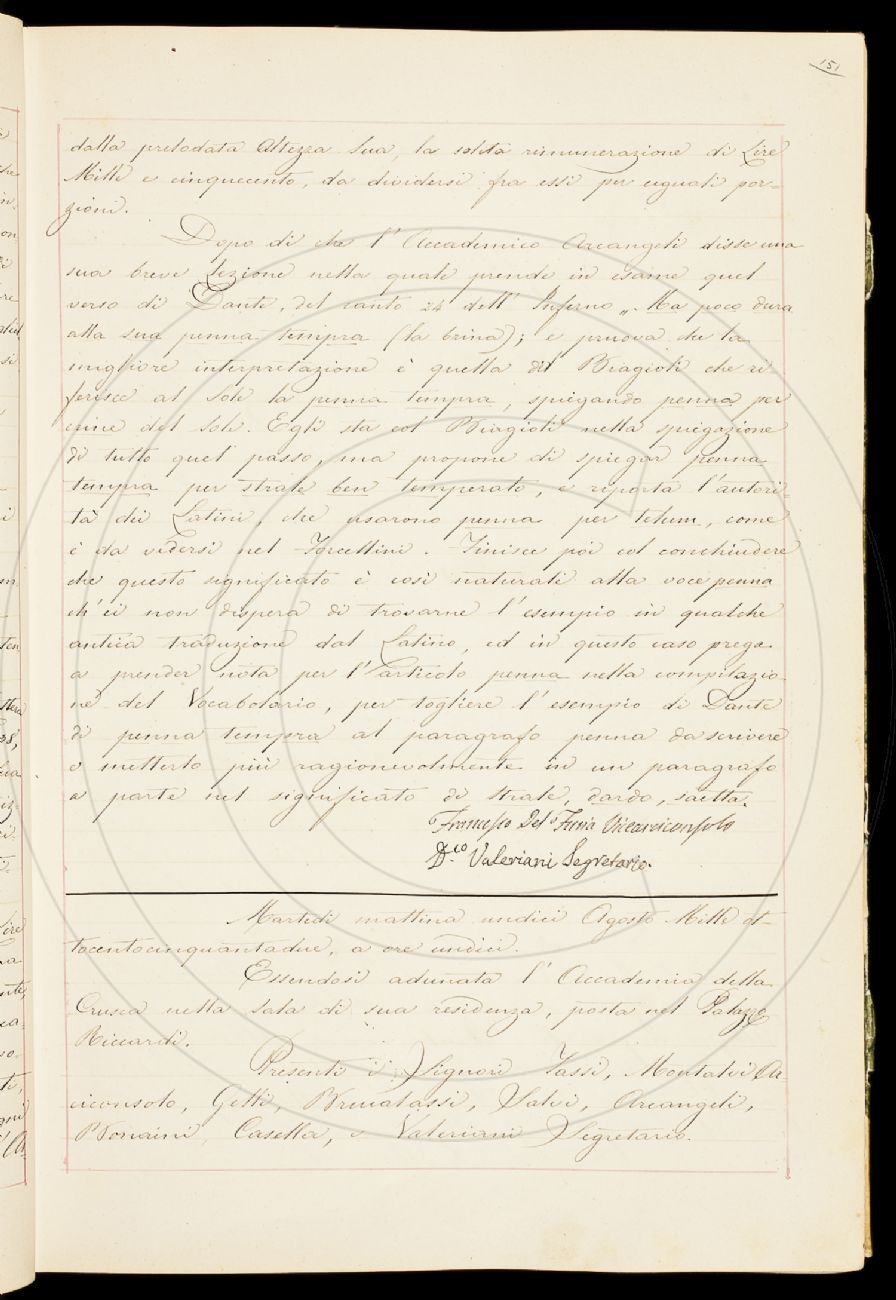 151
dalla prelodata Altezza Sua, la solita rimunerazione di Lire
Mille e cinquecento, da dividersi fra essi per eguali por-
zioni.
Dopo di che l' Accademico Arcangeli disse una
sua breve Lezione nella quale prende in esame quel
verso di Dante, del canto 24 dell' Inferno „ Ma poco dura
alla sua penna tempra (la brina); e pruova che la
migliore interpretazione è quella del Biagioli che ri
ferisce al Sole la penna tempra, spiegando penna per
crine del Sole. Egli sta col Biagioli nella spiegazione
di tutto quel passo, ma propone di spiegar penna
tempra per strale ben temperato, e riporta l'autori-
tà dei Latini, che usarono penna per telum, come
è da vedersi nel Forcellini. Finisce poi col conchiudere
che questo significato è così naturale alla voce penna
ch'ei non dispera di trovarne l'esempio in qualche
antica traduzione dal Latino, ed in questo caso prega
a prender nota per l'articolo penna nella compilazio-
ne del Vocabolario, per togliere l'esempio di Dante
di penna tempra al paragrafo penna da scrivere
e metterlo più ragionevolmente in un paragrafo
a parte nel significato di strale, dardo, saetta.
Francesco Del Furia Vicearciconsolo
D.co Valeriani Segretario.
Martedì mattina undici Agosto Mille ot-
tocentocinquantadue, a ore undici.
Essendosi adunata l' Accademia della
Crusca nella sala di sua residenza, posta nel Palazzo
Riccardi.
Presenti i Signori Tassi, Montalvi Ar-
ciconsolo, Gelli, Brucalassi, Salvi, Arcangeli,
Bonaini, Casella, e Valeriani Segretario.